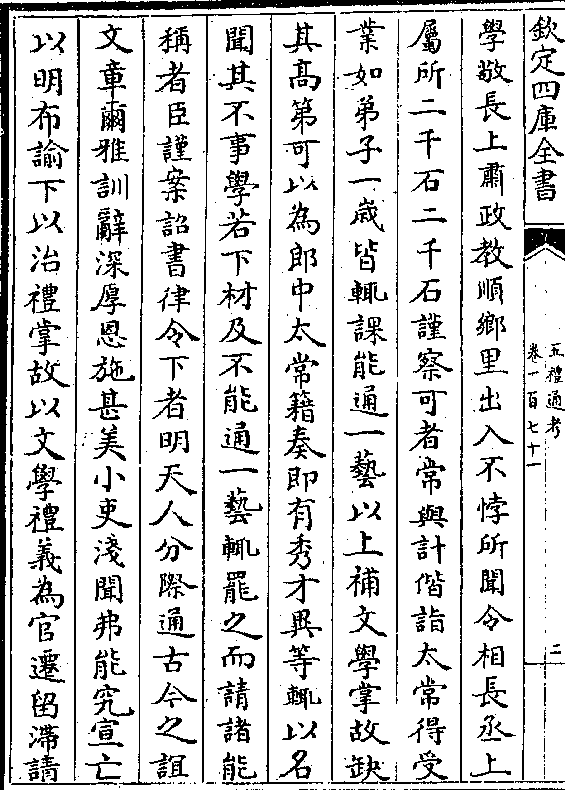 欽定四庫全書
五禮通考
卷一百七十一
二
學敬長上肅政教順鄉里出入不悖所聞令相長丞上
屬所二千石二千石謹察可者常與計偕詣太常得受
業如弟子一歲皆輒課能通一藝以上補文學掌故缺
其髙第可以為郎中太常籍奏即有秀才異等輒以名
聞其不事學若下材及不能通一藝輒罷之而請諸能
稱者臣謹案詔書律令下者明天人分際通古今之誼
文章爾雅訓辭深厚恩施甚美小吏淺聞弗能究宣亡
以明布諭下以治禮掌故以文學禮義為官遷留滯請